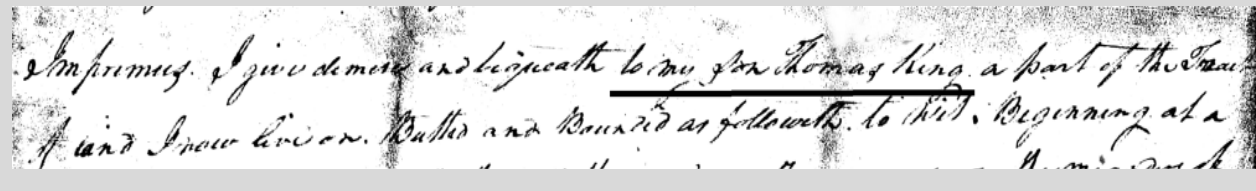 Imprimis. I give demise and biqueath to my son Thomas King a part of the Tract
of Land I now live on. Butted and Bounded as followeth. to Wit. Beginning at a